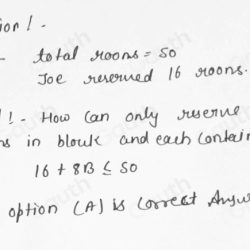 ion! -
- total rooms = 50
Joe reserved 16 rooms.
! - How can only reserve
ns in blouk and each contain
16 + 8B ≤ 50
option (A) is correct Answ